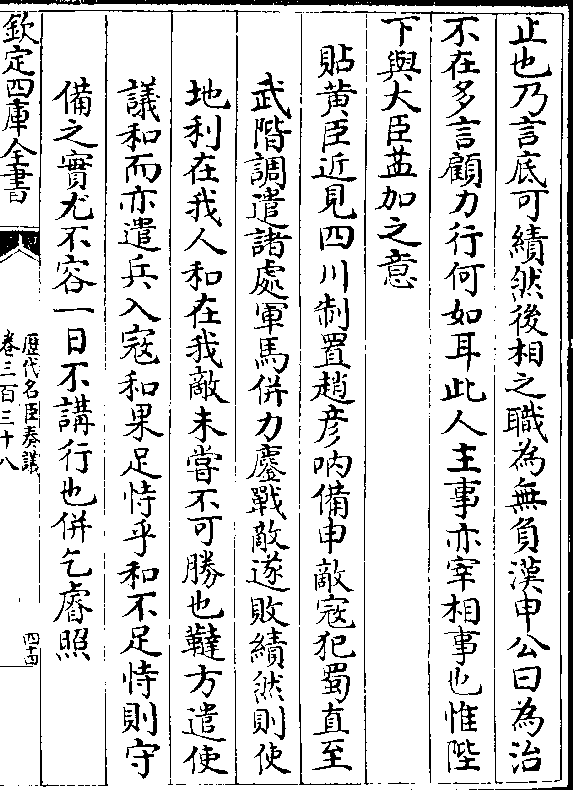 止也乃言底可績然後相之職為無負漢申公曰為治
不在多言顧力行何如耳此人主事亦宰相事也惟陛
下與大臣茲加之意
貼黃臣近見四川制置趙彦吶備申敵寇犯蜀直至
武階調遣諸處軍馬併力鏖戰敵遂敗績然則使
地利在我人和在我敵未嘗不可勝也韃方遣使
議和而亦遣兵入寇和果足恃乎和不足恃則守
備之實尤不容一日不講行也併乞睿照
欽定四庫全書
歷代名臣奏議
卷三百三十八
四十四